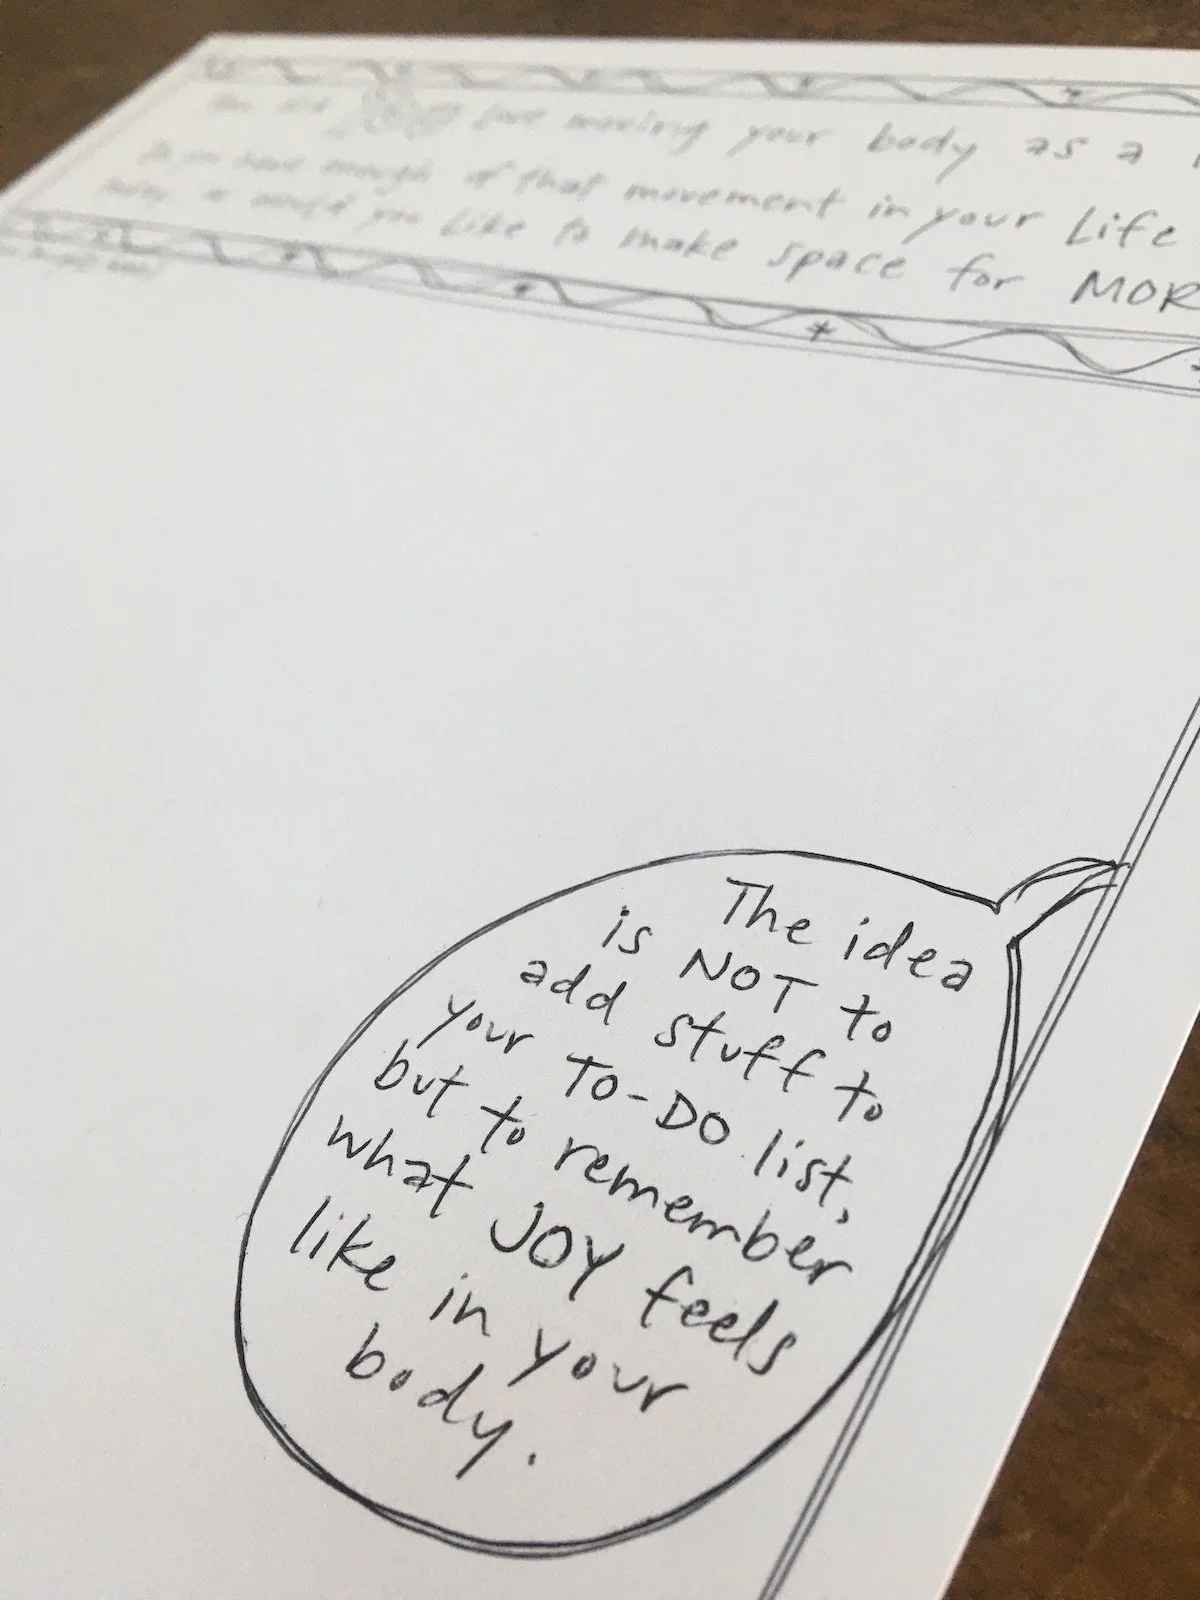 How did YOU love moving your body as a
Do you have enough of that movement in your Life
today, or would you Like to make space for MOR
The idea
is NOT to
add stuff to
your TO-DO list,
but to remember
what JOY feels
like in your
body.